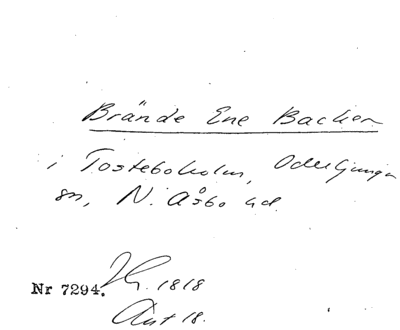 Brände Ene Backen
i Tosteboholm, Oderljunga
sn, N. Åsbo hd.
Nr 7294. 1818
Ant 18.